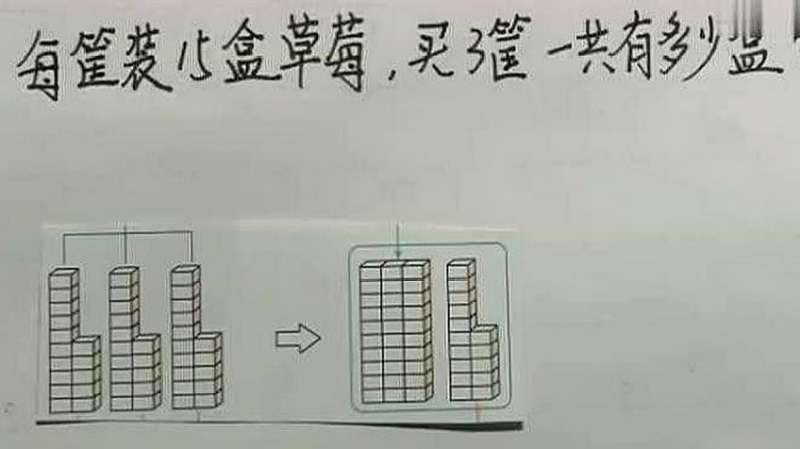 每筐装15盒草莓,买3筐一共有多少盒